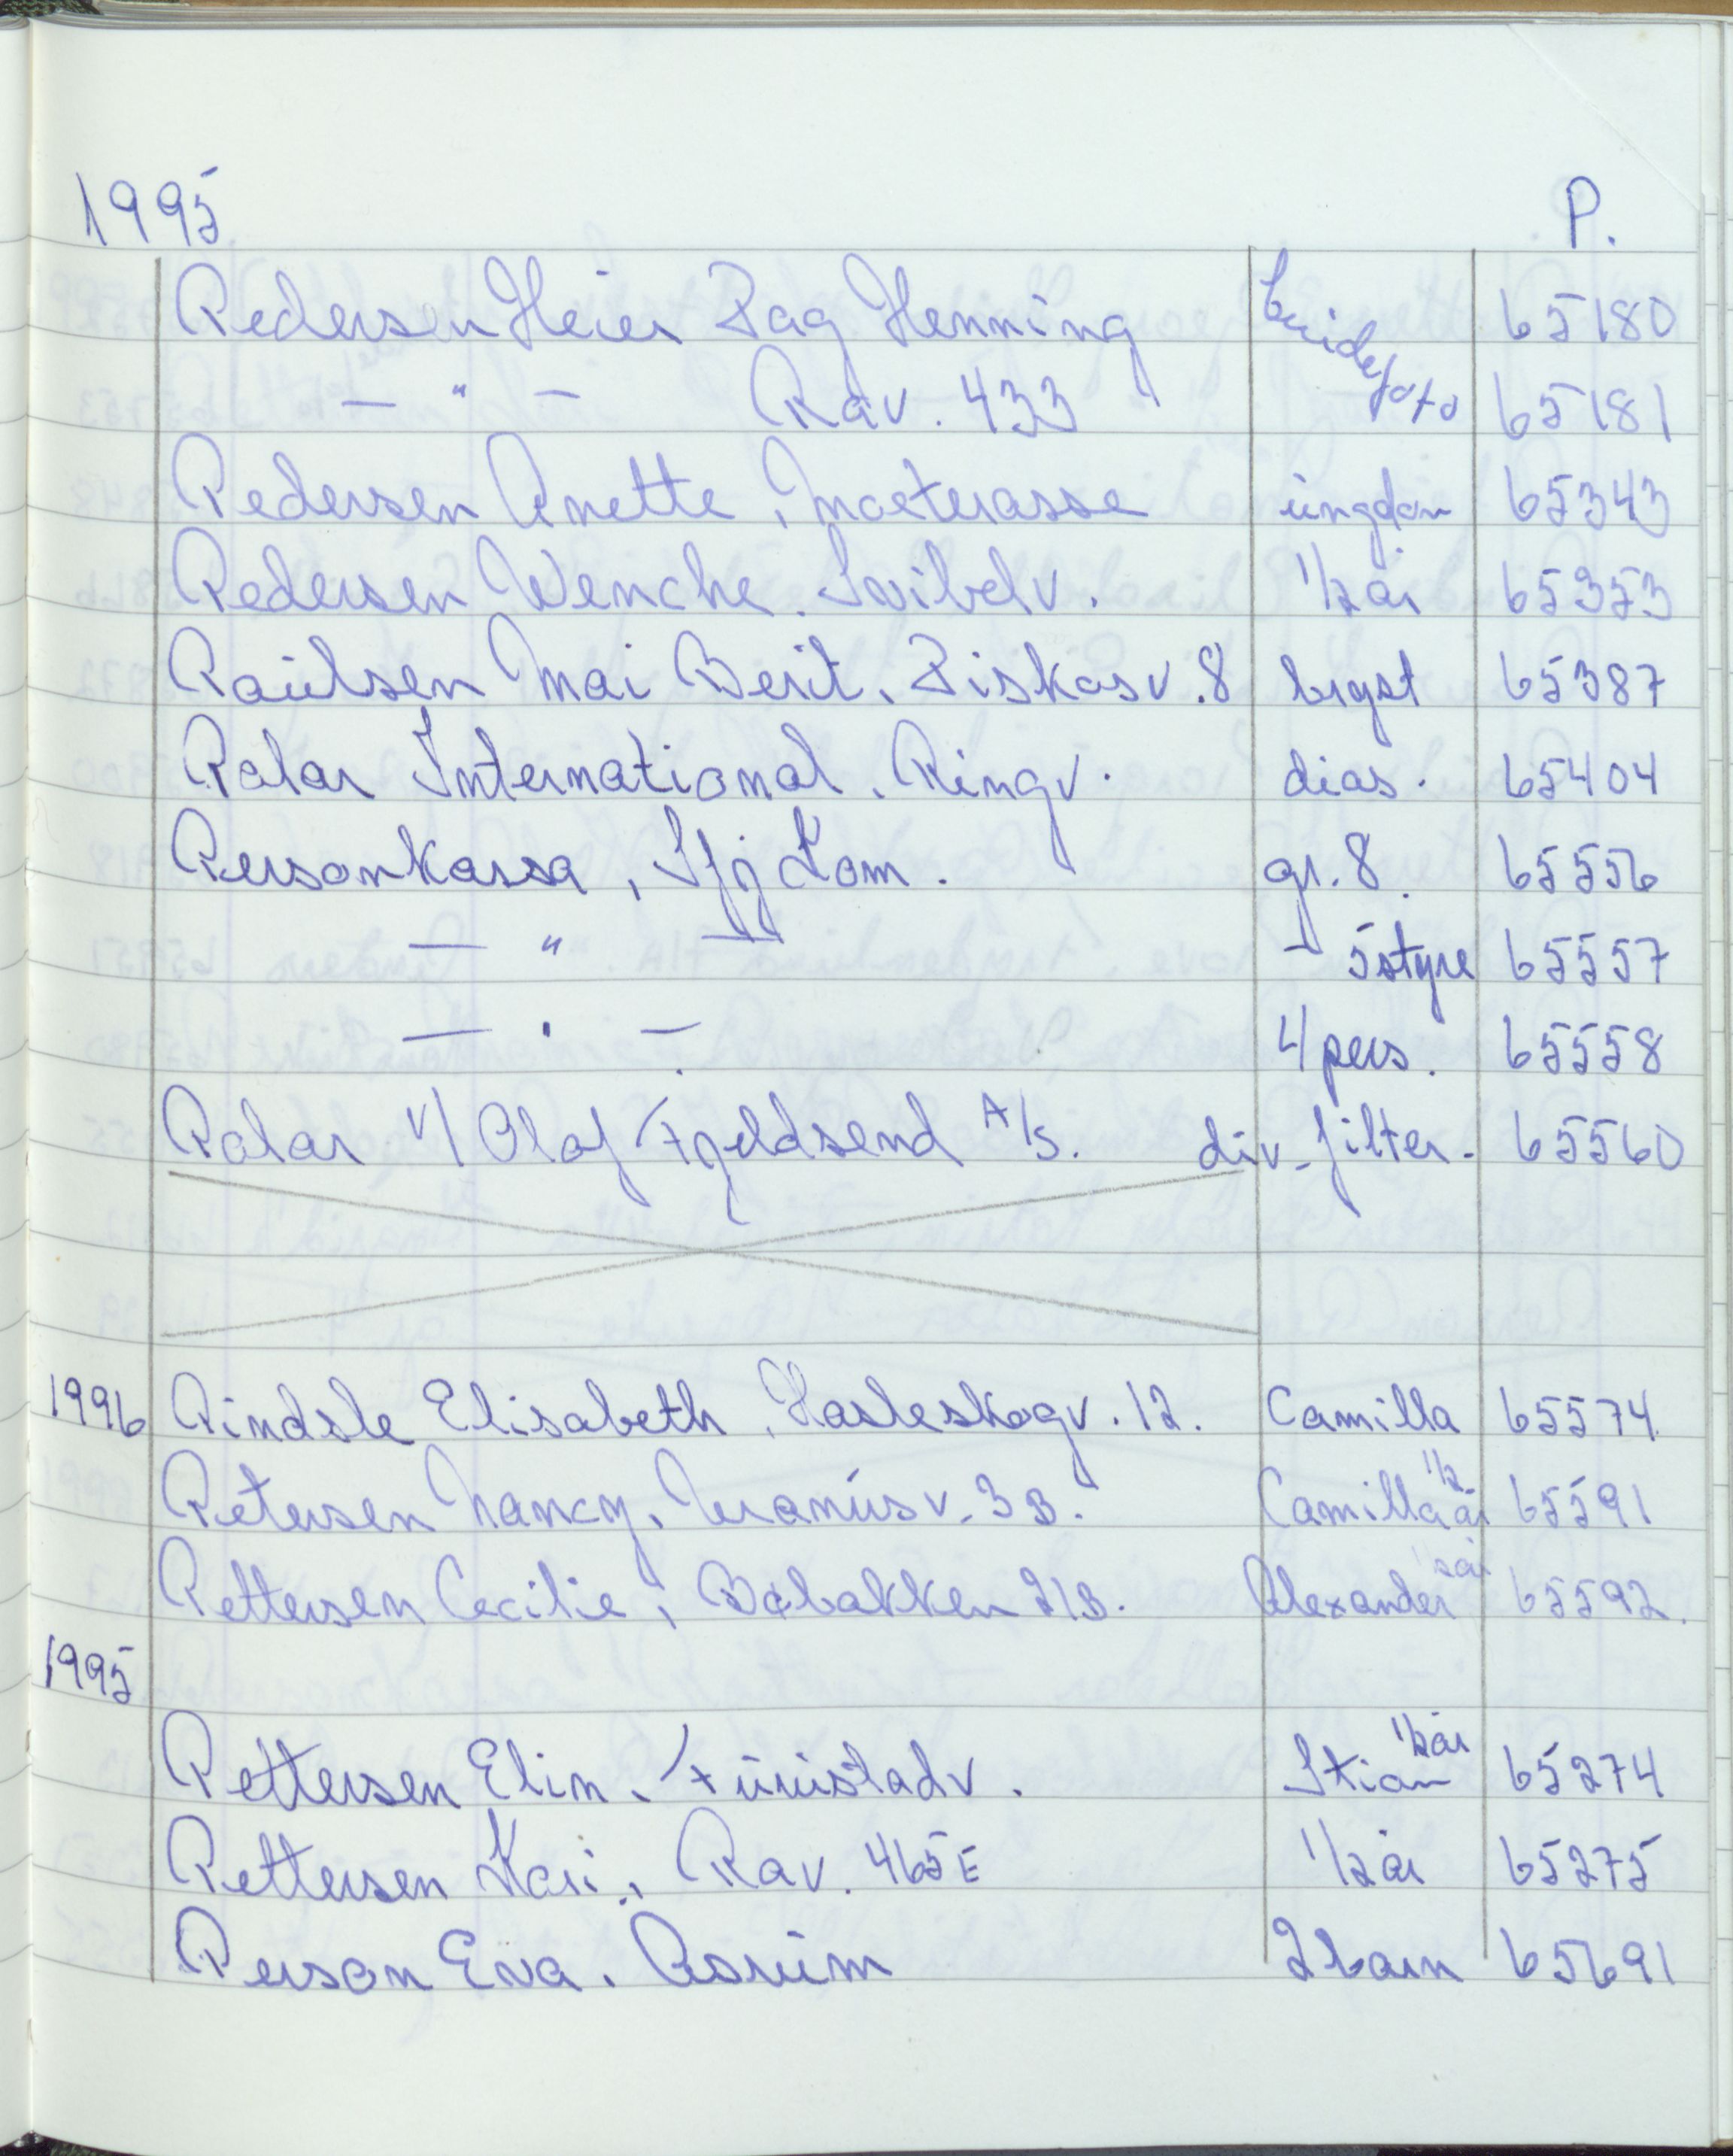 1995 P.
Pedersen Heier Dag Henning brudefoto 65180
— " — Rav. 433 65181
Pedersen Anette, Moeterasse ungdom 65343
Pedersen Wenche. Svibelv. 1/2 år 65353
Paulsen Mai Berit. Fiskåsv. 8 bryst 65387
Polar International. Ringv. dias. 65404
Personkassa, Sfj Kom. gr. 8. 65556
— " — - 5 styre 65557
— " — 4 pers. 65558
Polar v/ Olaf Fjeldsend A/S. div. filter. 65560
1996 Pindsle Elisabeth, Hasleskogv. 12. Camilla 65574
Petersen Nancy, Uranusv. 3B. Camilla 1/2 år 65591
Pettersen Cecilie, Bøbakken 21B. Alexander 1/2 år 65592.
1995
Pettersen Elin. Furustadv. Stian 1/2 år 65274
Pettersen Kari, Rav. 465E 1/2 år 65275
Person Eva. Åsrum 2 barn 65691